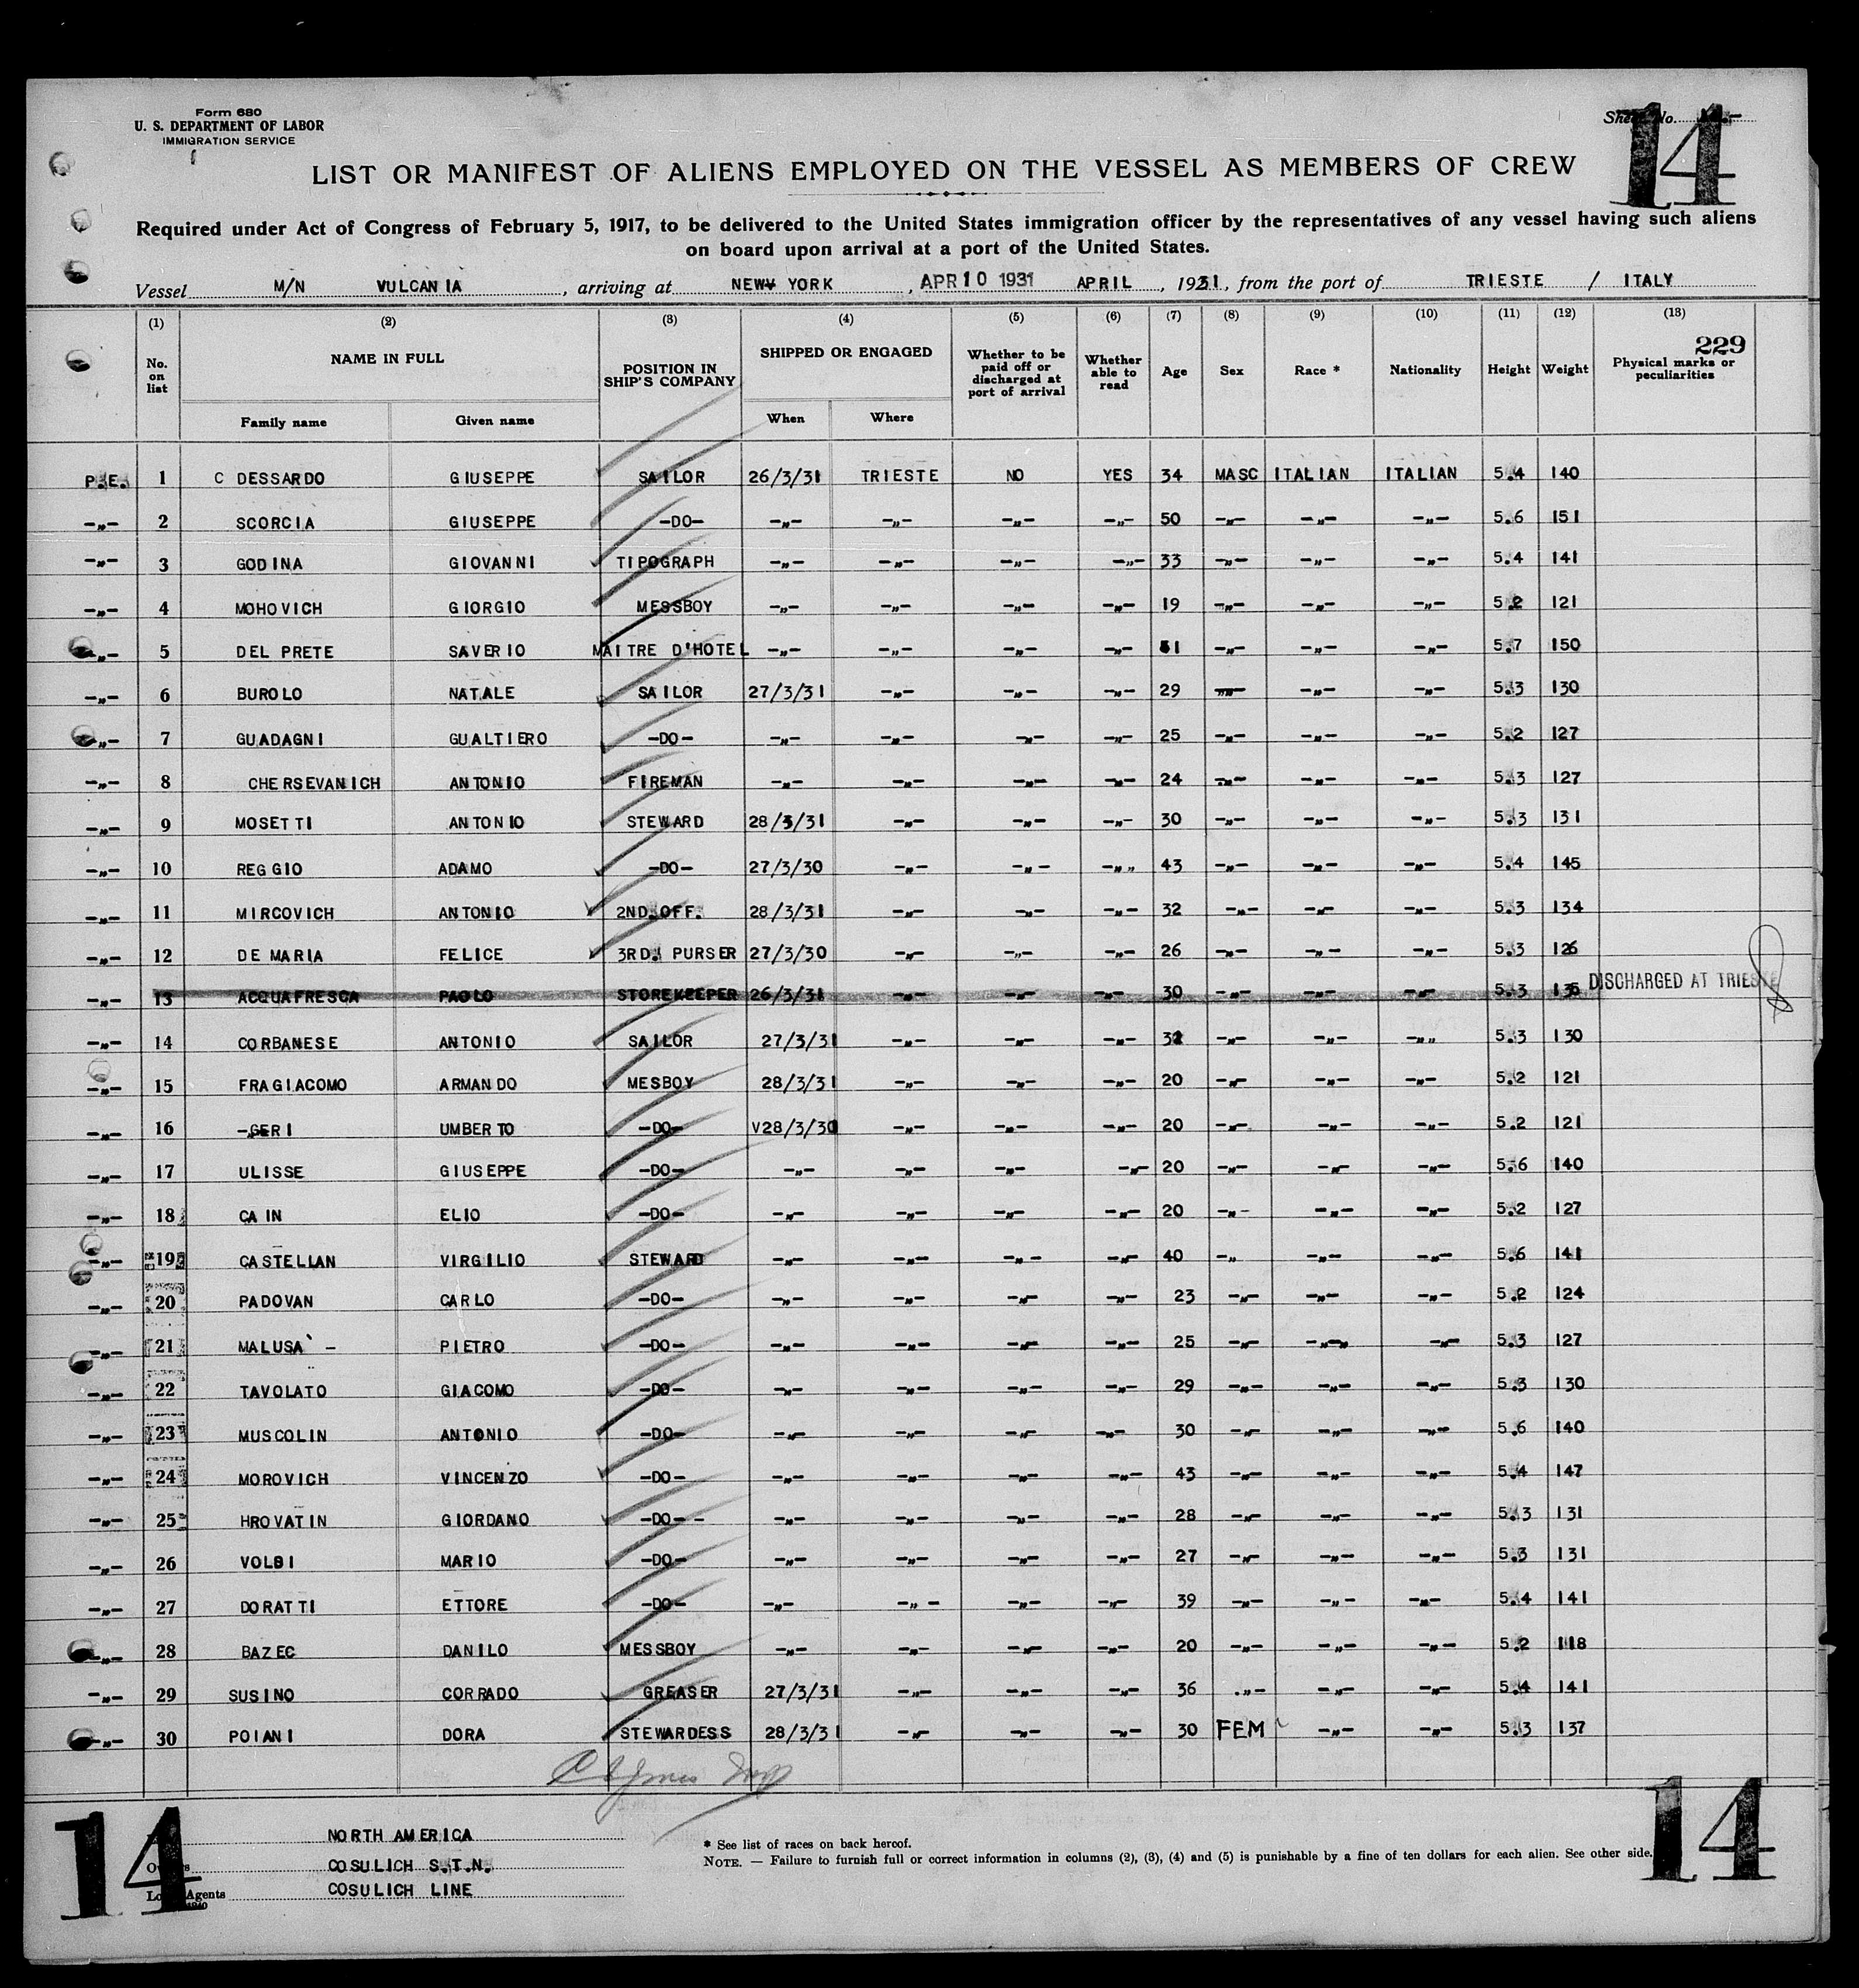 Form 680
U. S. DEPARTMENT OF LABOR
IMMIGRATION SERVICE
Sheet No.
14
LIST OR MANIFEST OF ALIENS EMPLOYED ON THE VESSEL AS MEMBERS OF CREW
Required under Act of Congress of February 5, 1917, to be delivered to the United States immigration officer by the representatives of any vessel having such aliens
on board upon arrival at a port of the United States.
Vessel M/N VULCANIA, arriving at NEW YORK, APR 10 1931 APRIL, 1931, from the port of TRIESTE / ITALY
(1) (2) (3) (4) (5) (6) (7) (8) (9) (10) (11) (12) (13)
229
No. on list NAME IN FULL POSITION IN SHIP'S COMPANY SHIPPED OR ENGAGED Whether to be paid off or discharged at port of arrival Whether able to read Age Sex Race * Nationality Height Weight Physical marks or peculiarities
Family name Given name When Where
P.E. 1 C DESSARDO GIUSEPPE SAILOR 26/3/31 TRIESTE NO YES 34 MASC ITALIAN ITALIAN 5.4 140
-"- 2 SCORCIA GIUSEPPE -DO- -"- -"- -"- -"- 50 -"- -"- -"- 5.6 151
-"- 3 GODINA GIOVANNI TIPOGRAPH -"- -"- -"- -"- 33 -"- -"- -"- 5.4 141
-"- 4 MOHOVICH GIORGIO MESSBOY -"- -"- -"- -"- 19 -"- -"- -"- 5.2 121
-"- 5 DEL PRETE SAVERIO MAITRE D'HOTEL -"- -"- -"- -"- -"- -"- -"- 5.7 150
-"- 6 BUROLO NATALE SAILOR 27/3/31 -"- -"- -"- 29 -"- -"- -"- 5.3 130
-"- 7 GUADAGNI GUALTIERO -DO- -"- -"- -"- -"- 25 -"- -"- -"- 5.2 127
-"- 8 CHERSEVANICH ANTONIO FIREMAN -"- -"- -"- -"- 24 -"- -"- -"- 5.3 127
-"- 9 MOSETTI ANTONIO STEWARD 28/3/31 -"- -"- -"- 30 -"- -"- -"- 5.3 131
-"- 10 REGGIO ADAMO -DO- 27/3/30 -"- -"- -"" 43 -"- -"- -"- 5.4 145
-"- 11 MIRCOVICH ANTONIO 2ND. OFF. 28/3/31 -"- -"- -"- 32 -"- -"- -"- 5.3 134
-"- 12 DE MARIA FELICE 3RD. PURSER 27/3/30 -"- -"- -"- 26 -"- -"- -"- 5.3 126
-"- 13 ACQUAFRESCA PAOLO STOREKEEPER 26/3/31 -"- -"- -"- 30 -"- -"- -"- 5.3 DISCHARGED AT TRIESTE
-"- 14 CORBANESE ANTONIO SAILOR 27/3/31 -"- -"- -"- -"- -"- -"" 5.3 130
-"- 15 FRAGIACOMO ARMANDO MESBOY 28/3/31 -"- -"- -"- 20 -"- -"- -"- 5.2 121
-"- 16 -GERI UMBERTO -DO- V28/3/30 -"- -"- -"- 20 -"- -"- -"- 5.2 121
-"- 17 ULISSE GIUSEPPE -DO- -"- -"- -"- -"- 20 -"- -"- -"- 5.6 140
-"- 18 CAIN ELIO -DO- -"- -"- -"- -"- 20 -"- -"- -"- 5.2 127
-"- 19 CASTELLAN VIRGILIO STEWARD -"- -"- -"- -"- 40 -" -"- -"- 5.6 141
-"- 20 PADOVAN CARLO -DO- -"- -"- -"- -"- 23 -"- -"- -"- 5.2 124
-"- 21 MALUSA` - PIETRO -DO- -"- -"- -"- -"- 25 -"- -"- -"- 5.3 127
-"- 22 TAVOLATO GIACOMO -DO- -"- -"- -"- -"- 29 -"- -"- -"- 5.3 130
-"- 23 MUSCOLIN ANTONIO -DO- -"- -"- -"- -"- 30 -"- -"- -"- 5.6 140
-"- 24 MOROVICH VINCENZO -DO- -"- -"- -"- -"- 43 -"- -"- -"- 5.4 147
-"- 25 HROVATIN GIORDANO -DO-- -"- -"- -"- -"- 28 -"- -"- -"- 5.3 131
-"- 26 VOLBI MARIO -DO- -"- -"- -"- -"- 27 -"- -"- -"- 5.3 131
-"- 27 DORATTI ETTORE -DO- -"- -"- -"- -"- 39 -"- -"- -"- 5.4 141
-"- 28 BAZEC DANILO MESSBOY -"- -"- -"- -"- 20 -"- -"- -"- 5.2 118
-"- 29 SUSINO CORRADO GREASER 27/3/31 -"- -"- -"- 36 -"- -"- -"- 5.4 141
-"- 30 POIANI DORA STEWARDESS 28/3/31 -"- -"- -"- 30 FEM -"- -"- 5.3 137
14
14
NORTH AMERICA
Owners COSULICH S.T.N.
Local Agents COSULICH LINE
* See list of races on back hereof.
NOTE. — Failure to furnish full or correct information in columns (2), (3), (4) and (5) is punishable by a fine of ten dollars for each alien. See other side.